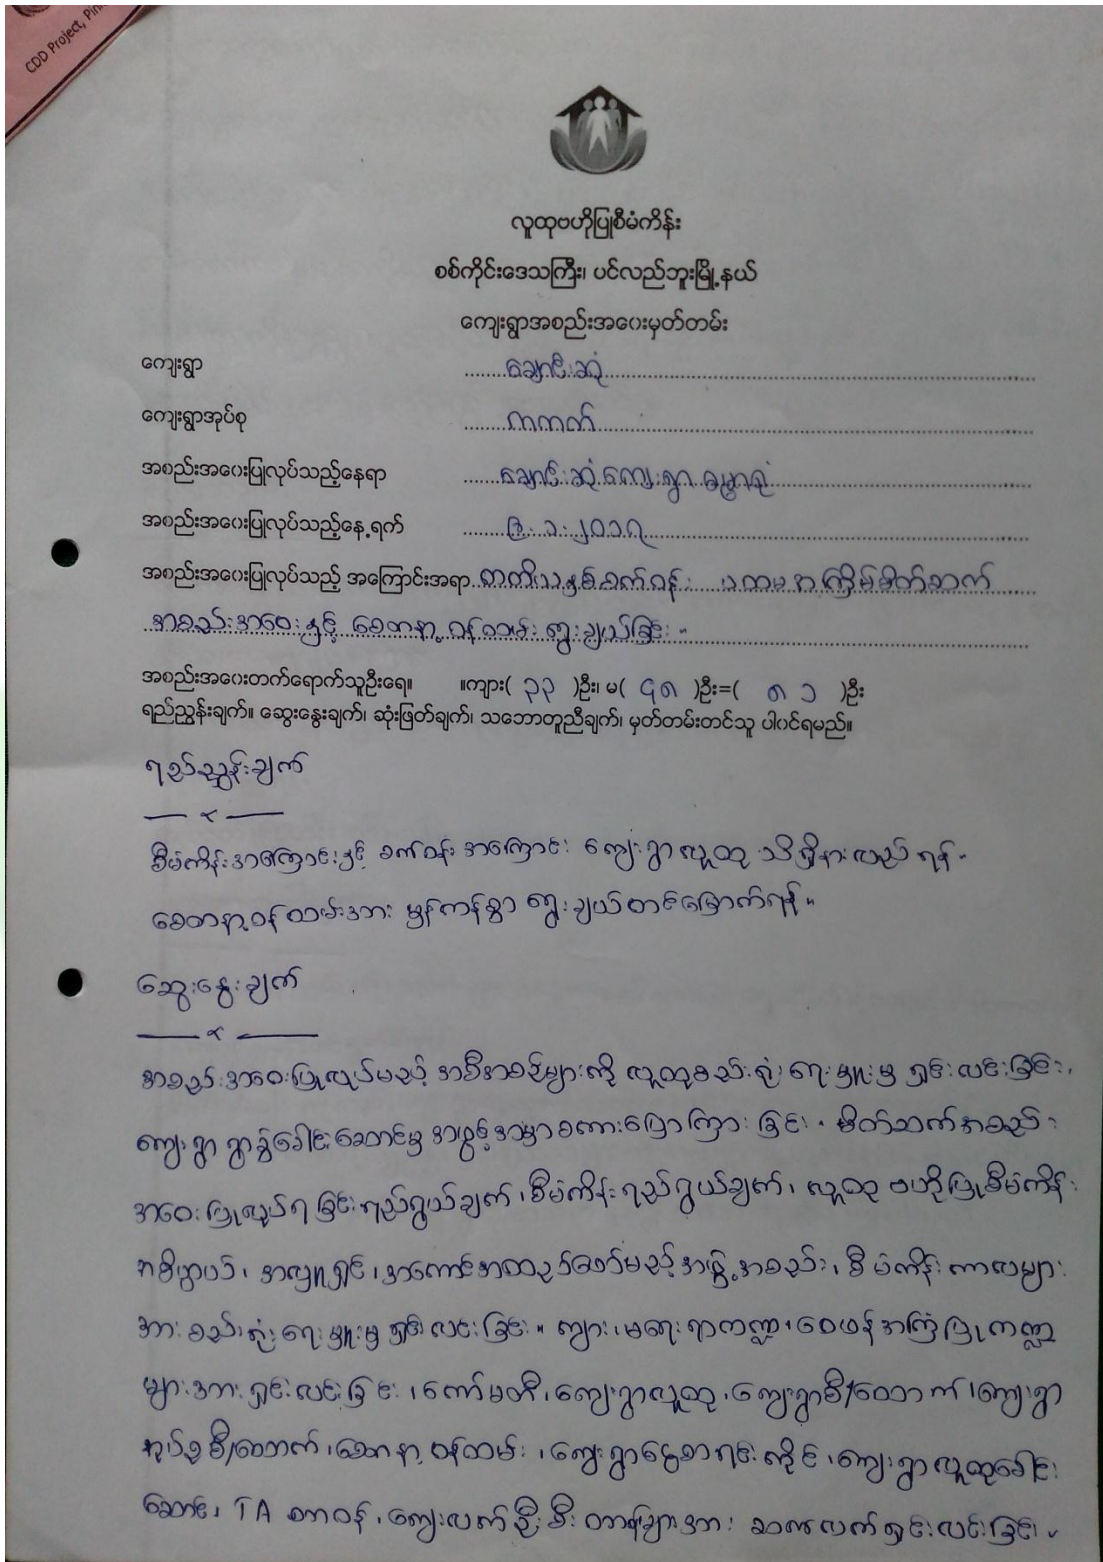 CDD Project, Pin
လူထုဗဟိုပြုစီမံကိန်း
စစ်ကိုင်းဒေသကြီး၊ ပင်လည်ဘူးမြို့နယ်
ကျေးရွာအစည်းအဝေးမှတ်တမ်း
ကျေးရွာ ချောင်းဆုံ
ကျေးရွာအုပ်စု ကကတ်
အစည်းအဝေးပြုလုပ်သည့်နေရာ ချောင်းဆုံကျေးရွာ ဓမ္မာရုံ
အစည်းအဝေးပြုလုပ်သည့်နေ့ရက် ၁.၂၀၁၇
အစည်းအဝေးပြုလုပ်သည့် အကြောင်းအရာ တတိယနှစ်စက်ဝန်း ပထမအကြိမ်မိတ်ဆက်
အစည်းအဝေးနှင့် စေတနာ့ဝန်ထမ်း ရွေးချယ်ခြင်း။
အစည်းအဝေးတက်ရောက်သူဦးရေ။ ။ကျား( ၃၃ )ဦး၊ မ( ၄၈ )ဦး=( ၈၁ )ဦး
ရည်ညွှန်းချက်။ ဆွေးနွေးချက်၊ ဆုံးဖြတ်ချက်၊ သဘောတူညီချက်၊ မှတ်တမ်းတင်သူ ပါဝင်ရမည်။
ရည်ညွှန်းချက်
စီမံကိန်းအကြောင်းနှင့် စက်ဝန်းအကြောင်း ကျေးရွာလူထု သိရှိနားလည်ရန်။
စေတနာ့ဝန်ထမ်းအား မှန်ကန်စွာ ရွေးချယ်တင်မြှောက်ရန်။
ဆွေးနွေးချက်
အစည်းအဝေးပြုလုပ်မည့် အစီအစဉ်များကို လူထုစည်းရုံးရေးမှူးမှ ရှင်းလင်းခြင်း၊
ကျေးရွာ ရွာခွဲခေါင်းဆောင်မှ အဖွင့်အမှာစကားပြောကြားခြင်း၊ မိတ်ဆက်အစည်း
အဝေးပြုလုပ်ရခြင်းရည်ရွယ်ချက်၊ စီမံကိန်းရည်ရွယ်ချက်၊ လူထုဗဟိုပြုစီမံကိန်း
အဓိပ္ပာယ်၊ အလှူရှင်၊ အကောင်အထည်ဖော်မည့်အဖွဲ့အစည်း၊ စီမံကိန်းကာလများ
အား စည်းရုံးရေးမှူးမှ ရှင်းလင်းခြင်း။ ကျား၊ မရေးရာကဏ္ဍ၊ ဝေဖန်အကြံပြုကဏ္ဍ
များအားရှင်းလင်းခြင်း၊ ကော်မတီ၊ ကျေးရွာလူထု၊ ကျေးရွာစီ/ထောက်၊ ကျေးရွာ
အုပ်စုစီ/ထောက်၊ စေတနာ့ဝန်ထမ်း၊ ကျေးရွာငွေစာရင်းကိုင်၊ ကျေးရွာလူထုခေါင်း
ဆောင်၊ TA တာဝန်၊ ကျေးလက်ဦးစီး တာဝန်များအား ဆက်လက်ရှင်းလင်းခြင်း။